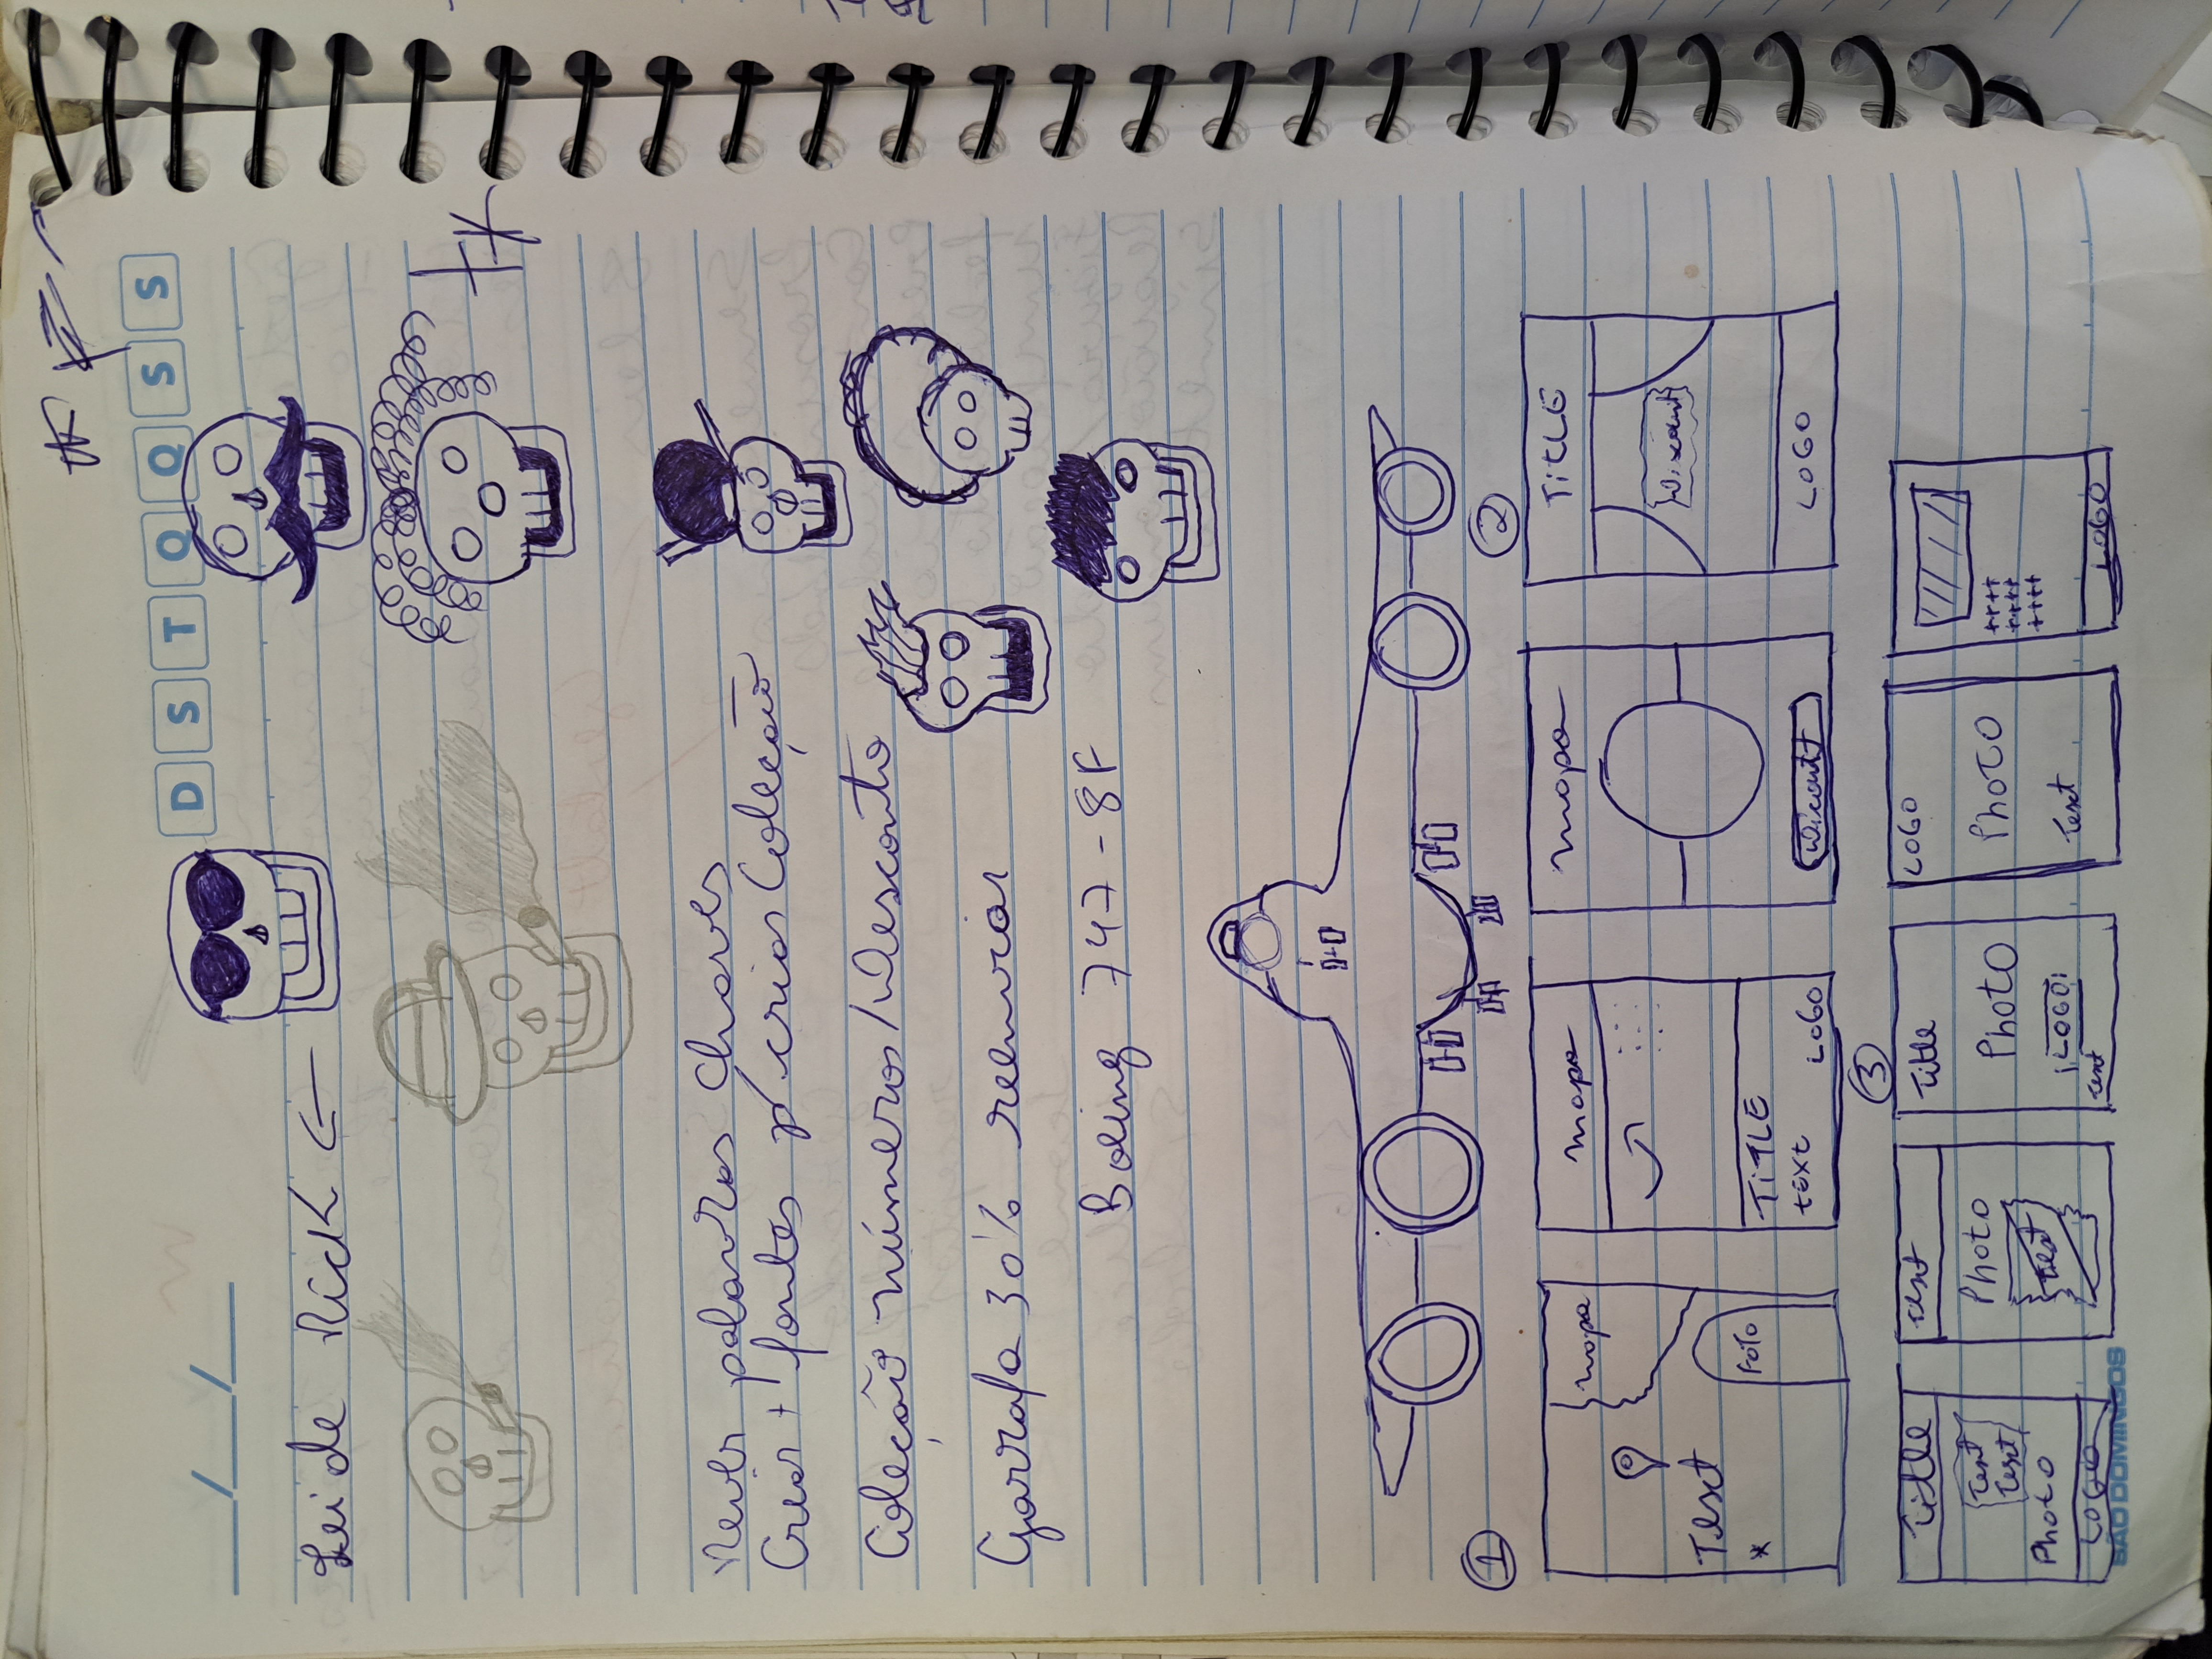 D S T Q Q S S
__/__/__
Lei de Rick ←
Rever palavras chaves
Criar + fontes p/ criar Coleção
Coleção números/Desconto
Garrafa 30% reenviar
Boeing 747-8F
1
2
mapa
Text
*
FOTO
mapa
TITLE
text
LOGO
mapa
Discount
TITLE
Discount
LOGO
3
Title
Text
Text
Photo
LOGO
Text
Photo
Text
Title
Photo
LOGO
Text
LOGO
Photo
Text
++++
++++
++++
LOGO
SÃO DOMINGOS